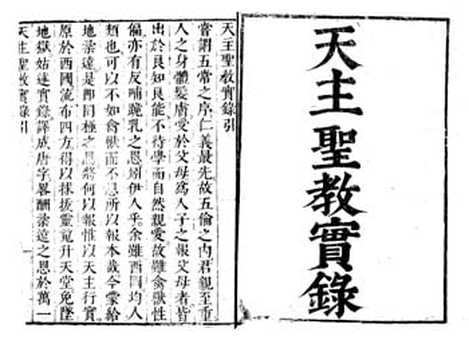 天主聖教實錄
天主聖教實錄引
嘗謂五常之序仁義最先故五倫之內君親至重
人之身體髮膚受於父母爲人子之報父母者皆
出於良知良能不待學而自然親愛故雖禽獸性
偏亦有反哺跪乳之恩矧伊人乎余雖西國均人
類也可以不如禽獸而不思所以報本哉今蒙給
地柴遠是卽罔極之恩將何以報惟以天主行實
原於西國流布四方得以捄拔靈魂升天堂免墜
地獄姑述實錄譯成唐字畧酬柴遠之恩於萬一
天主聖教實錄引